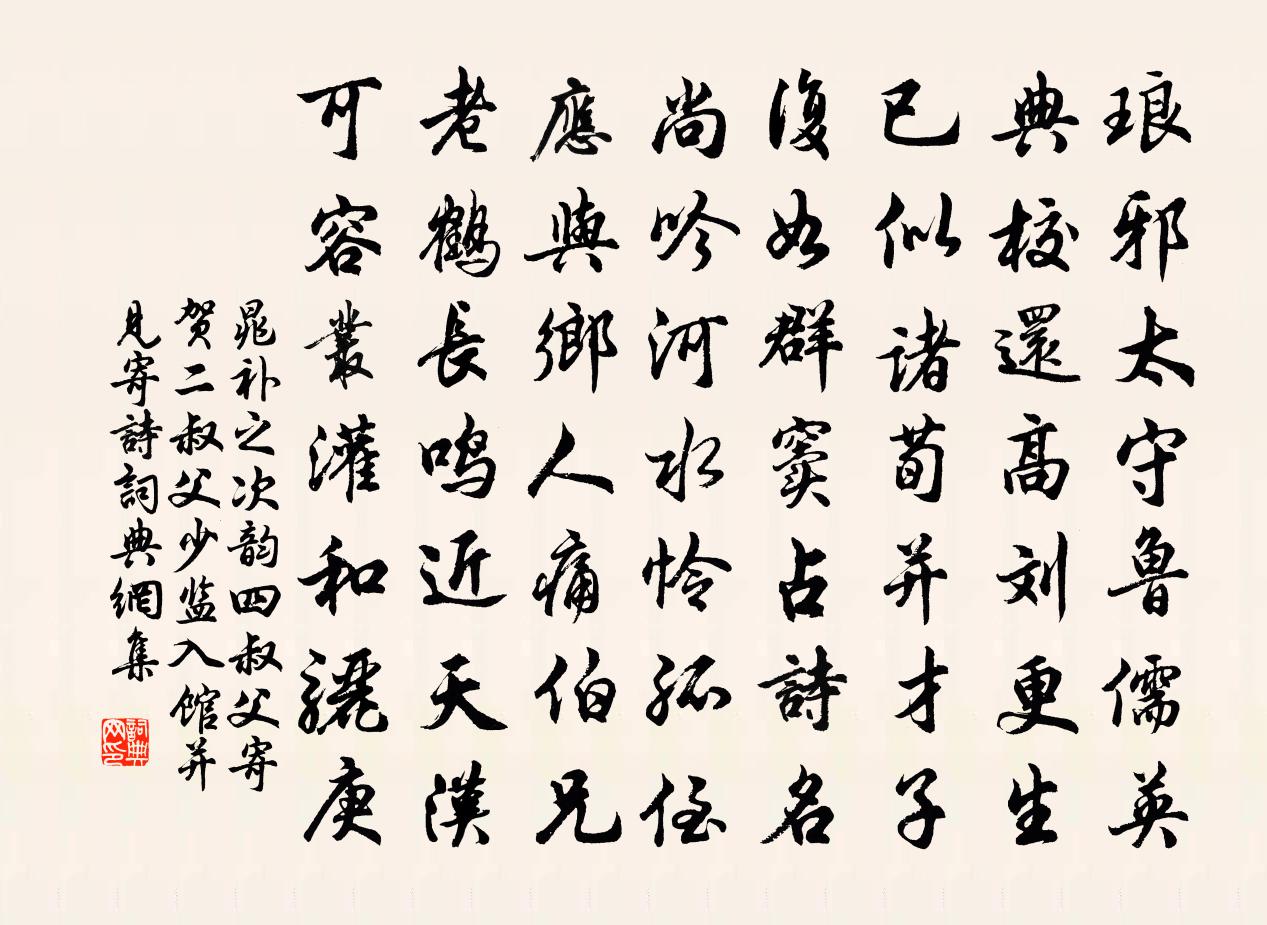 琅邪太守魯儒英
典校還高刘更生
已似諸荀并才子
復如群竇占詩名
尚吟河水怜孤侄
應與鄉人痛伯兄
老鶴長鸣近天漢
可容叢灌和鸝庚
晁补之次韵四叔父寄
贺二叔父少监入馆并
見寄詩詞典網集
詞典网印